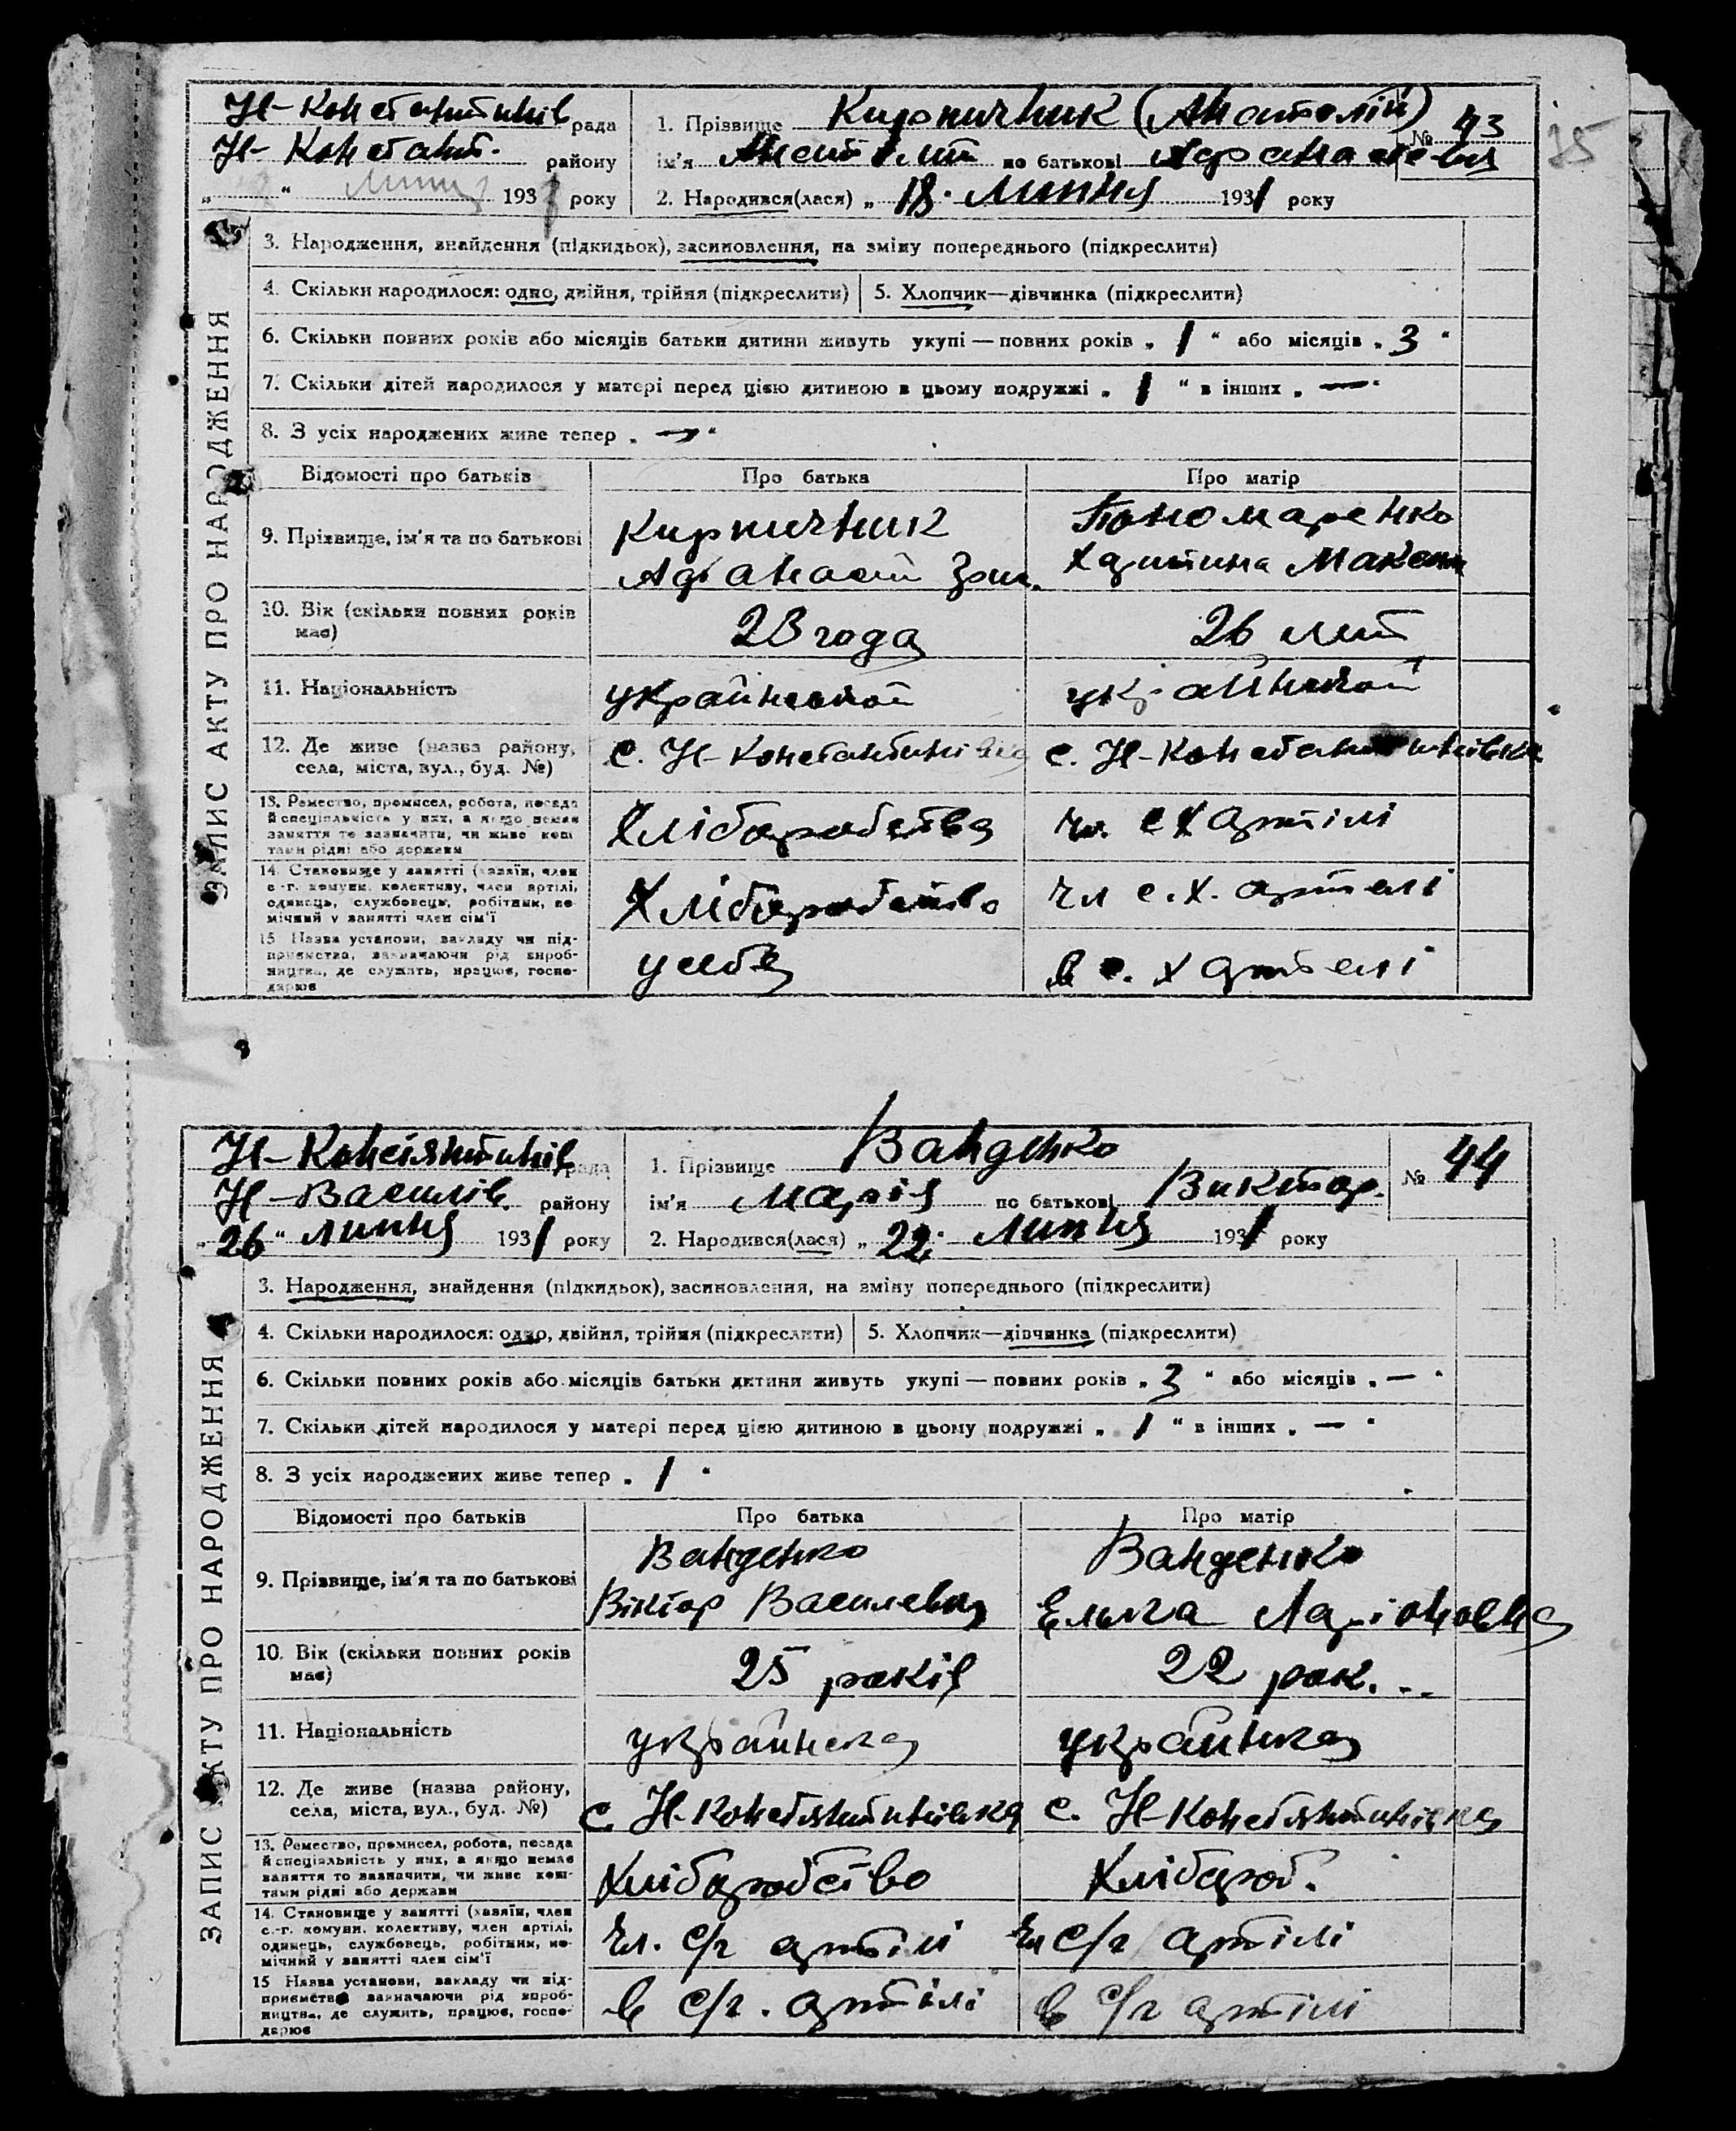 Н-Констянтинів рада
Н-Констант. району
„ “ липня 1931 року
1. Прізвище Кирпичник (Анатолій)
№ 43
35
ім'я Анатолій по батькові Афанасієвич
2. Народився(лася) „ 18. липня 1931 року
ЗАПИС АКТУ ПРО НАРОДЖЕННЯ
3. Народження, знайдення (підкидьок), засиновлення, на зміну попереднього (підкреслити)
4. Скільки народилося: одно, двійня, трійня (підкреслити) 5. Хлопчик—дівчинка (підкреслити)
6. Скільки повних років або місяців батьки дитини живуть укупі — повних років „ 1 “ або місяців „ 3 “
7. Скільки дітей народилося у матері перед цією дитиною в цьому подружжі „ 1 “ в інших „ — “
8. З усіх народжених живе тепер „ — “
Відомості про батьків Про батька Про матір
9. Прізвище, ім'я та по батькові
Кирпичник
Афанасій
Пономаренко
Хартина Максим
10. Вік (скільки повних років
має)
23 года
26 лет
11. Національність
українской
українской
12. Де живе (назва району,
села, міста, вул., буд. №)
с. Н-Константинівка
с. Н-Константинівка
13. Ремество, промисел, робота, посада
й спеціяльність у них, а якщо немає
заняття то зазначити, чи живе кош
тами рідні або держави
Хліборобство
чл. с х артілі
14. Становище у занятті (хазяїн, член
с.-г. комуни, колективу, член артілі,
одинець, службовець, робітник, по-
мічний у занятті член сім'ї
Хліборобство
чл с. х. артелі
15 Назва установи, закладу чи під-
приємства, зазначаючи рід вироб-
ництва, де служить, працює, госпо-
дарює
у себя
в с. х артелі
Н-Констянтинів рада
Н-Василів. району
„ 26 “ липня 1931 року
1. Прізвище Ванденко
№ 44
ім'я Марія по батькові Виктор.
2. Народився(лася) „ 22. липня 1931 року
ЗАПИС АКТУ ПРО НАРОДЖЕННЯ
3. Народження, знайдення (підкидьок), засиновлення, на зміну попереднього (підкреслити)
4. Скільки народилося: одно, двійня, трійня (підкреслити) 5. Хлопчик—дівчинка (підкреслити)
6. Скільки повних років або місяців батьки дитини живуть укупі — повних років „ 3 “ або місяців „ — “
7. Скільки дітей народилося у матері перед цією дитиною в цьому подружжі „ 1 “ в інших „ — “
8. З усіх народжених живе тепер „ 1 “
Відомості про батьків Про батька Про матір
9. Прізвище, ім'я та по батькові
Ванденко
Віктор Василевич
Ванденко
Ларіоновна
10. Вік (скільки повних років
має)
25 років
22 рок.
11. Національність
українска
українка
12. Де живе (назва району,
села, міста, вул., буд. №)
с Н-Констянтинівка
с. Н-Констянтинівка
13. Ремество, промисел, робота, посада
й спеціяльність у них, а якщо немає
заняття то зазначити, чи живе кош-
тами рідні або держави
Хліборобство
Хлібороб.
14. Становище у занятті (хазяїн, член
с.-г. комуни, колективу, член артілі,
одинець, службовець, робітник, по-
мічний у занятті член сім'ї
чл. с/г артілі
чл с/г артілі
15 Назва установи, закладу чи під-
приємства зазначаючи рід вироб-
ництва, де служить, працює, госпо-
дарює
в с/г. артілі
в с/г артілі